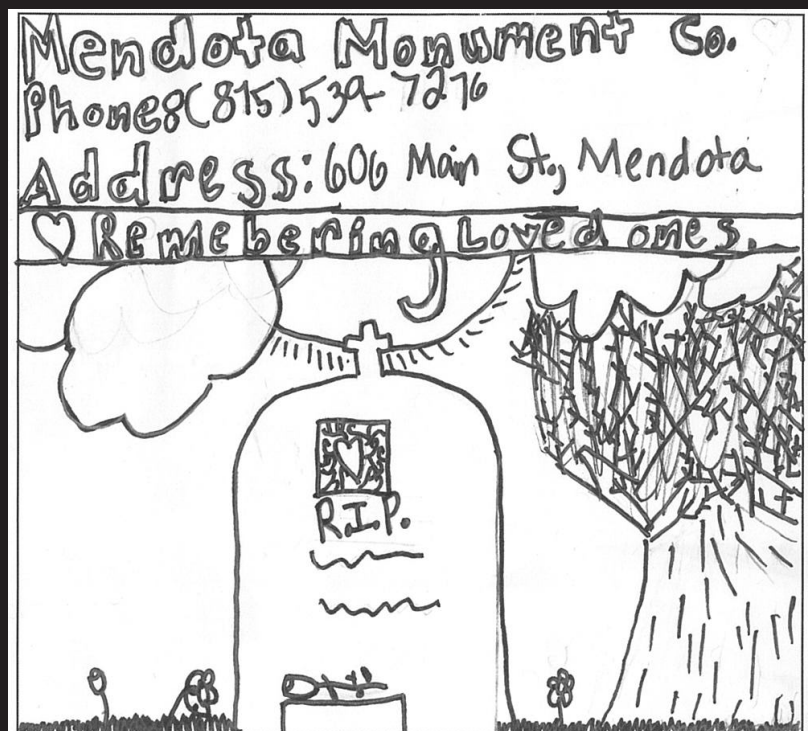 Mendota Monument Co.
Phone:(815)539-7276
Address: 606 Main St., Mendota
♡ Remebering Loved ones.
R.I.P.